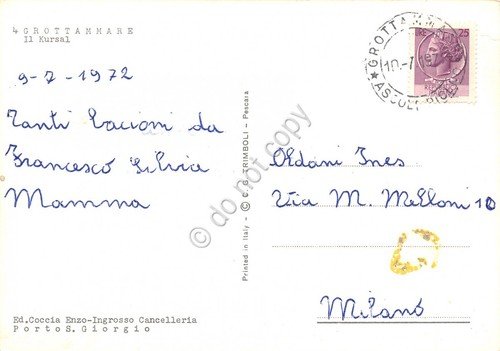 4 GROTTAMMARE
Il Kursal
9-7-1972
Tanti Bacioni da
Francesco Silvia
Mamma
Ed. Coccia Enzo-Ingrosso Cancelleria
Porto S. Giorgio
Printed in Italy - © C. G. TRIMBOLI - Pescara
do not copy
GROTTAMMARE
10.-7
ASCOLI
LIRE 25
Oldani Ines
Via M. Melloni 10
Milano